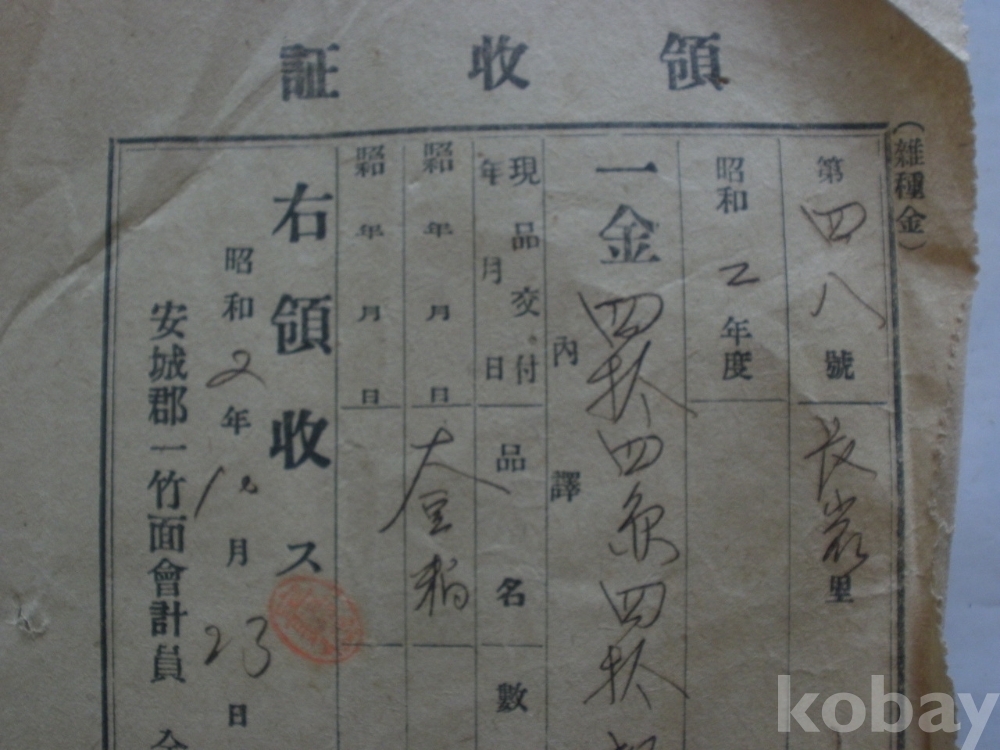 領收証
(雜種金)
第四八號 長岩里
昭和 2 年度
一金 四拾四円四拾
內譯
現品交付年月日 品名 數
昭和 年 月 日 大豆粕
昭和 年 月 日
右領收ス
昭和 2 年 12 月 23 日
安城郡一竹面會計員
kobay